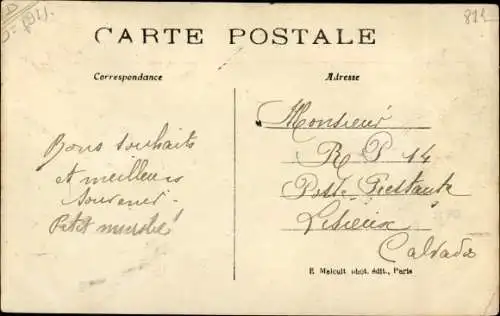 CARTE POSTALE
Correspondance
Adresse
Bons souhaits
et meilleurs
souvenir.
Petit
Monsieur
R P 14
Poste Restante
Lisieux
Calvados
E Malcuit phot. édit., Paris